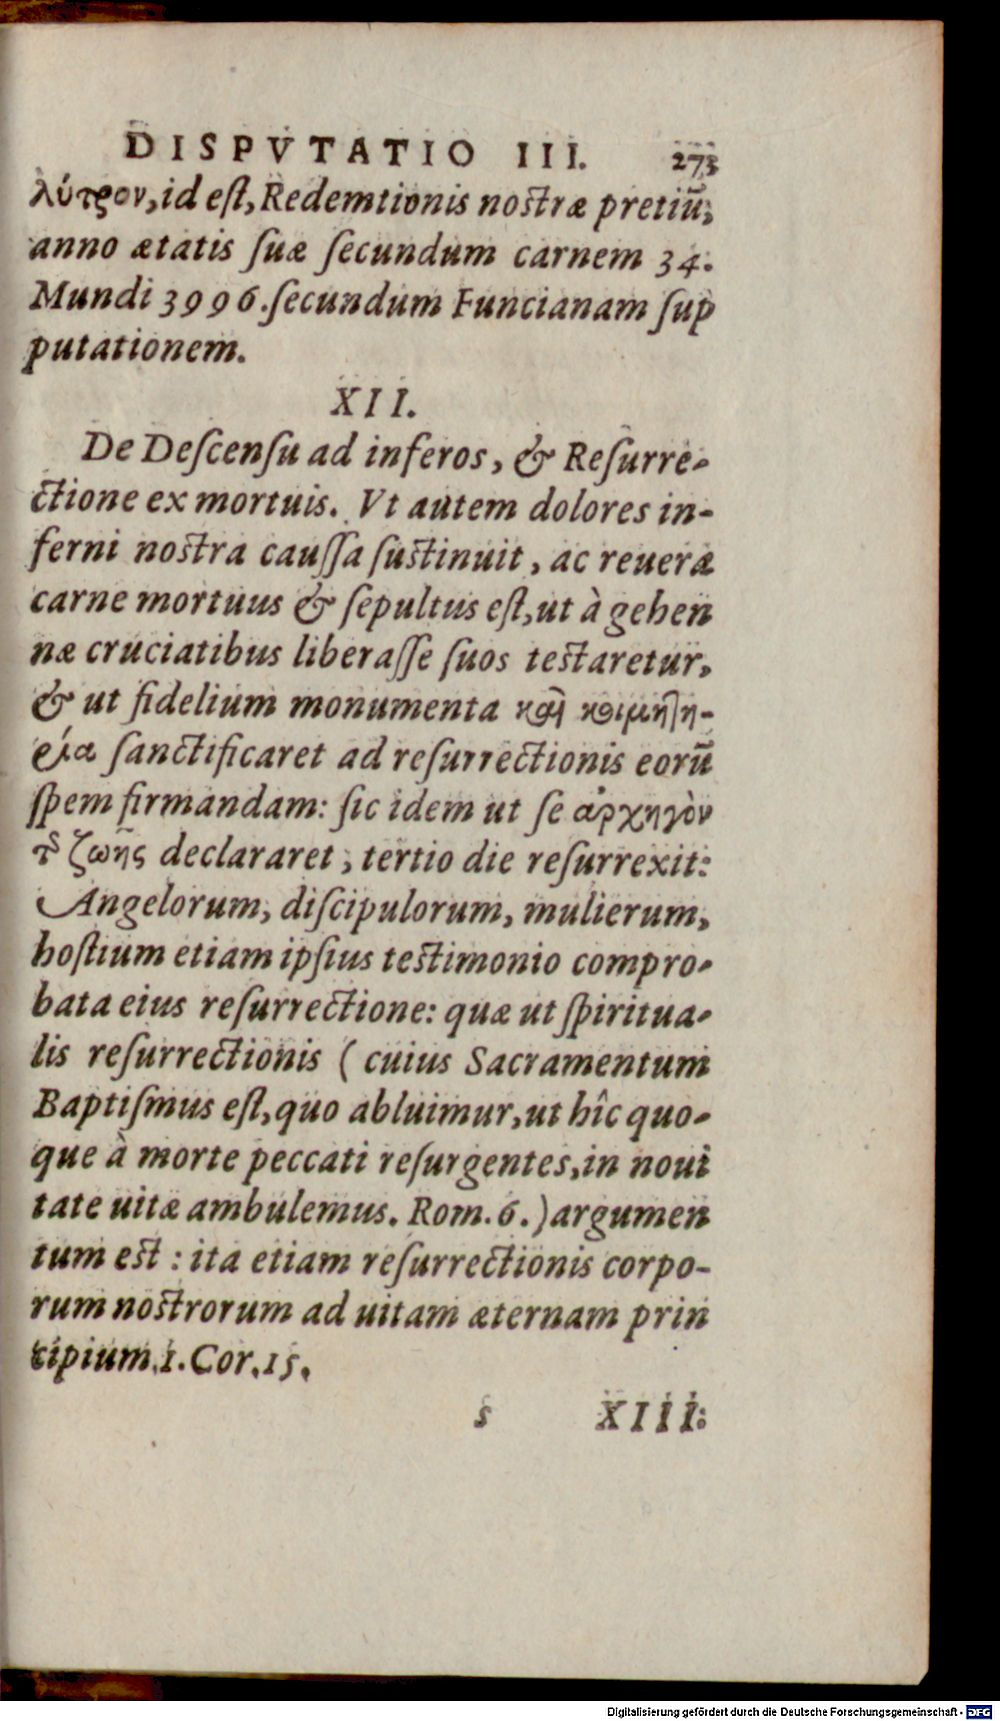 DISPVTATIO III. 273
λύτρον, id eſt, Redemtionis noſtræ pretiũ,
anno ætatis ſuæ ſecundum carnem 34.
Mundi 3996. ſecundum Funcianam ſup
putationem.
XII.
De Deſcenſu ad inferos, & Reſurre-
ctione ex mortuis. Vt autem dolores in-
ferni noſtra cauſſa ſuſtinuit, ac reuera
carne mortuus & ſepultus eſt, ut à gehen
næ cruciatibus liberaſſe ſuos teſtaretur,
& ut fidelium monumenta καὶ κοιμητή-
εια ſanctificaret ad reſurrectionis eorũ
ſpem firmandam: ſic idem ut ſe ἀρχηγὸν
τ῀ ζωῆς declararet, tertio die reſurrexit:
Angelorum, diſcipulorum, mulierum,
hoſtium etiam ipſius teſtimonio compro-
bata eius reſurrectione: quæ ut ſpiritua-
lis reſurrectionis (cuius Sacramentum
Baptiſmus eſt, quo abluimur, ut hîc quo-
que à morte peccati reſurgentes, in noui
tate uitæ ambulemus. Rom. 6.) argumen
tum eſt: ita etiam reſurrectionis corpo-
rum noſtrorum ad uitam æternam prin
cipium. 1. Cor. 15.
s XIII.
Digitalisierung gefördert durch die Deutsche Forschungsgemeinschaft - DFG